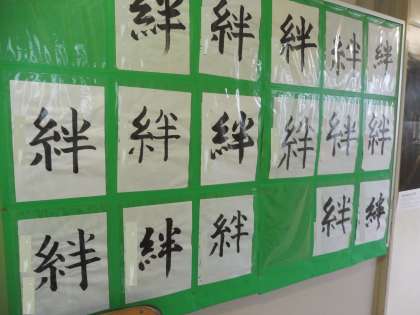 絆 絆 絆 絆 絆
絆 絆 絆 絆 絆 絆
絆 絆 絆 絆 絆